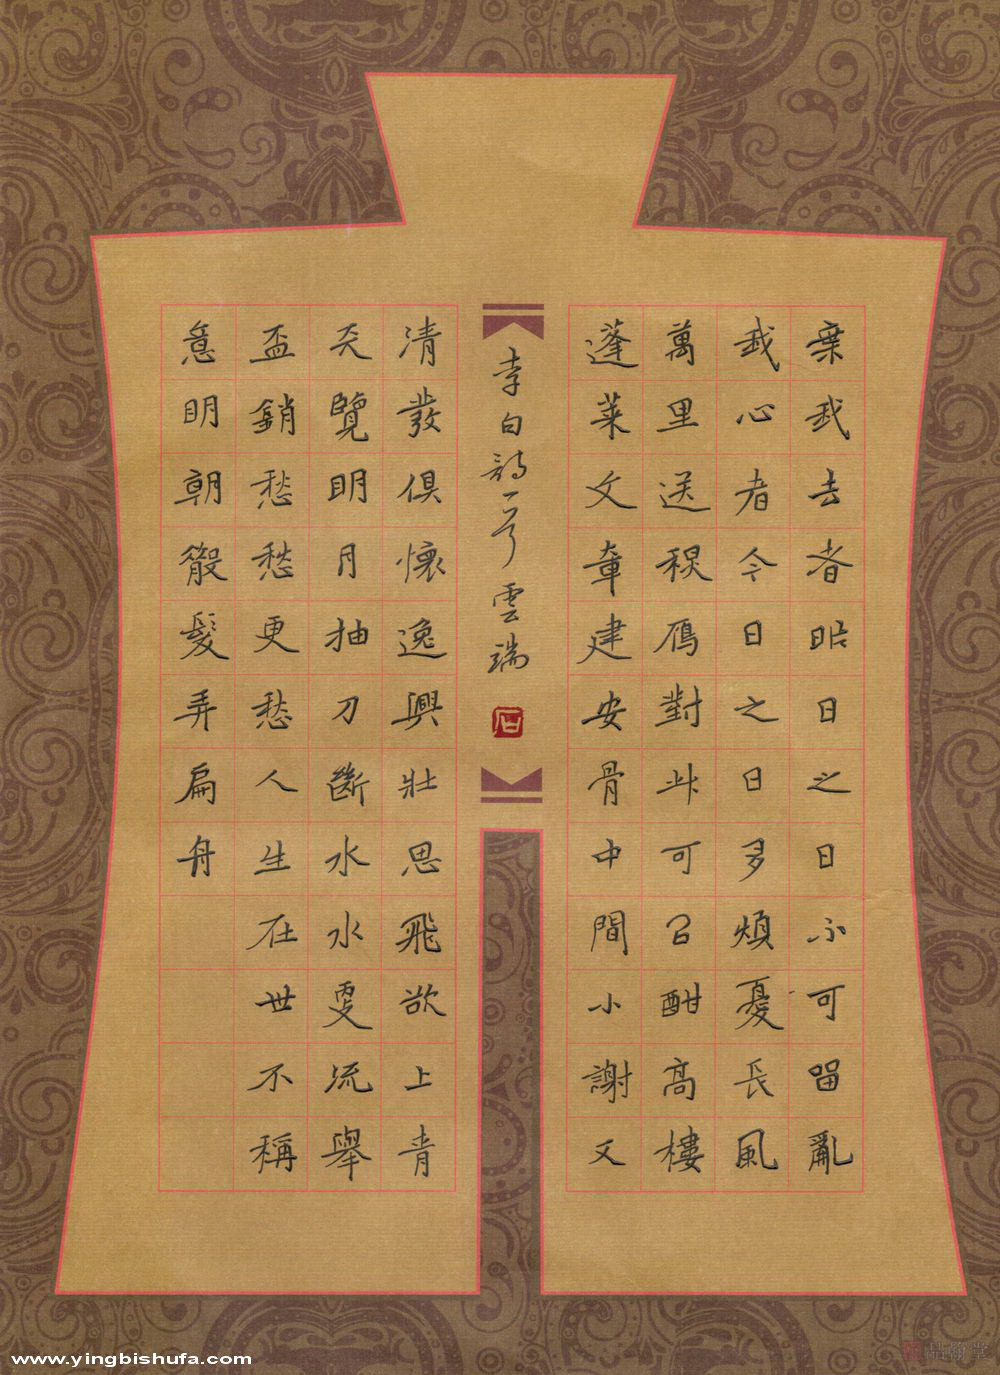 棄我去者昨日之日不可留亂
我心者今日之日多煩憂長風
萬里送秋雁對此可以酣高樓
蓬萊文章建安骨中間小謝又
李白詩一首 雲端
石
清發俱懷逸興壯思飛欲上青
天覽明月抽刀斷水水更流舉
盃銷愁愁更愁人生在世不稱
意明朝散髮弄扁舟
www.yingbishufa.com
品翰堂